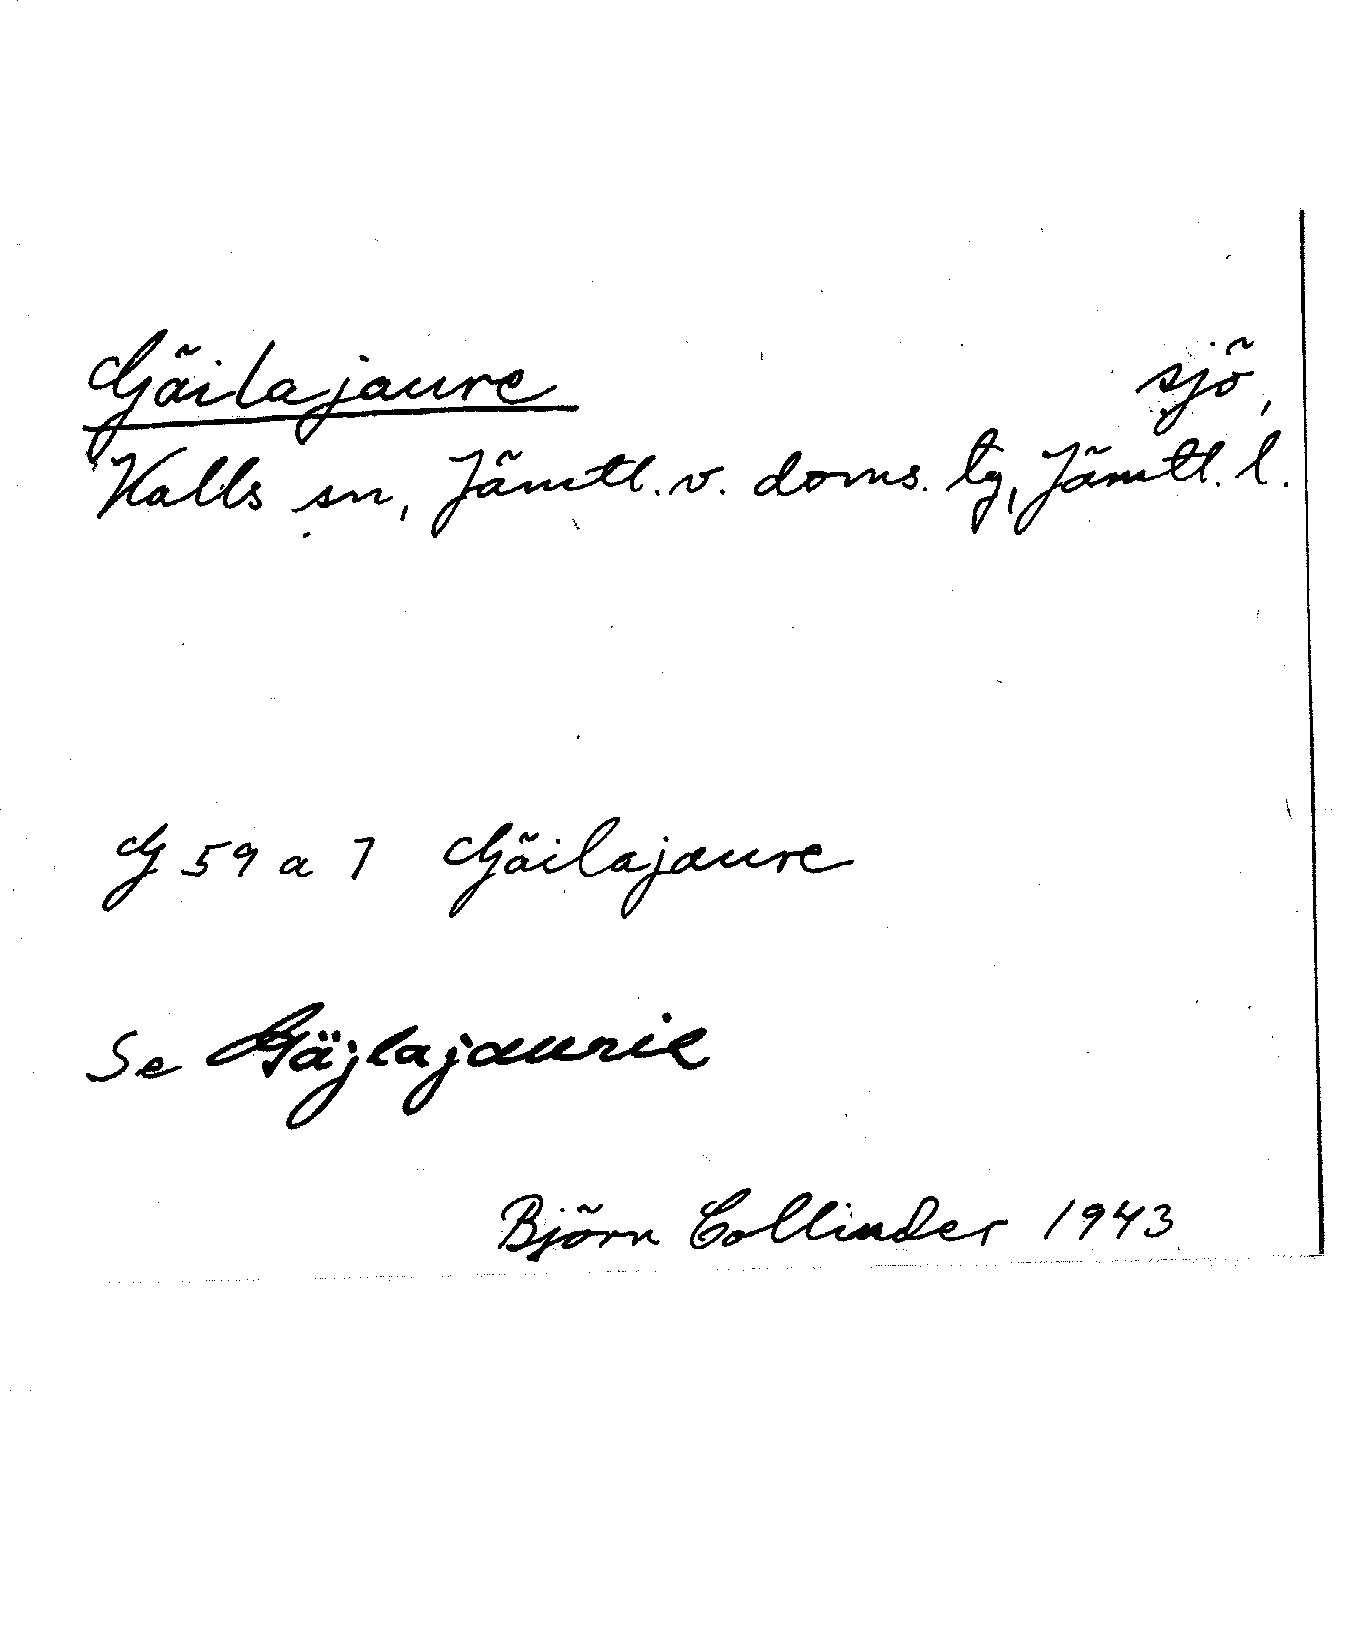 Gäilajaure sjö,
Kalls sn, Jämtl. v. doms. lg, Jämtl. l.
G 59 a 7 Gäilajaure
Se Gäjlajaurie
Björn Collinder 1943